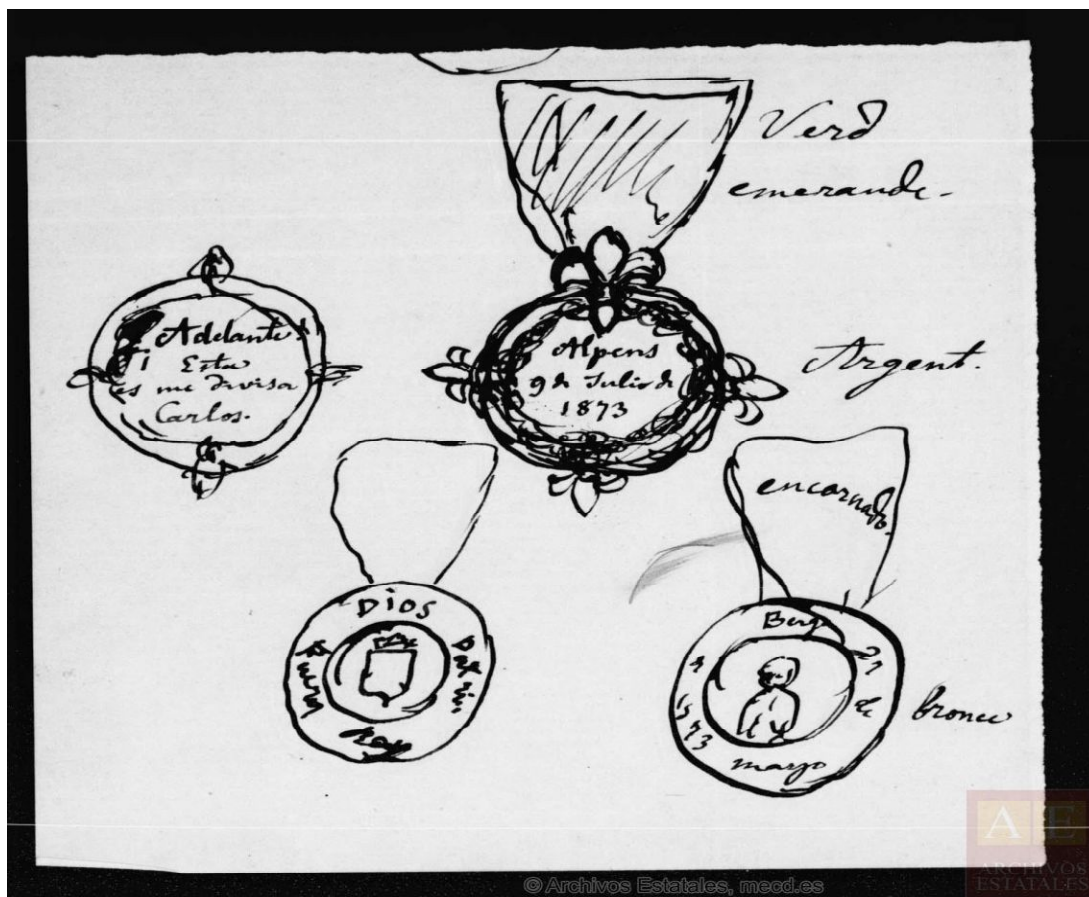 Verd
emeraude.
Adelante!
Esta
es mi divisa
Carlos.
Alpens
9 de Julio de
1873
Argent.
encarnado.
DIOS
Patria
Rey
Fueros
Berga
27
de
mayo
1873
bronce
© Archivos Estatales, mecd.es
AE
ARCHIVOS
ESTATALES